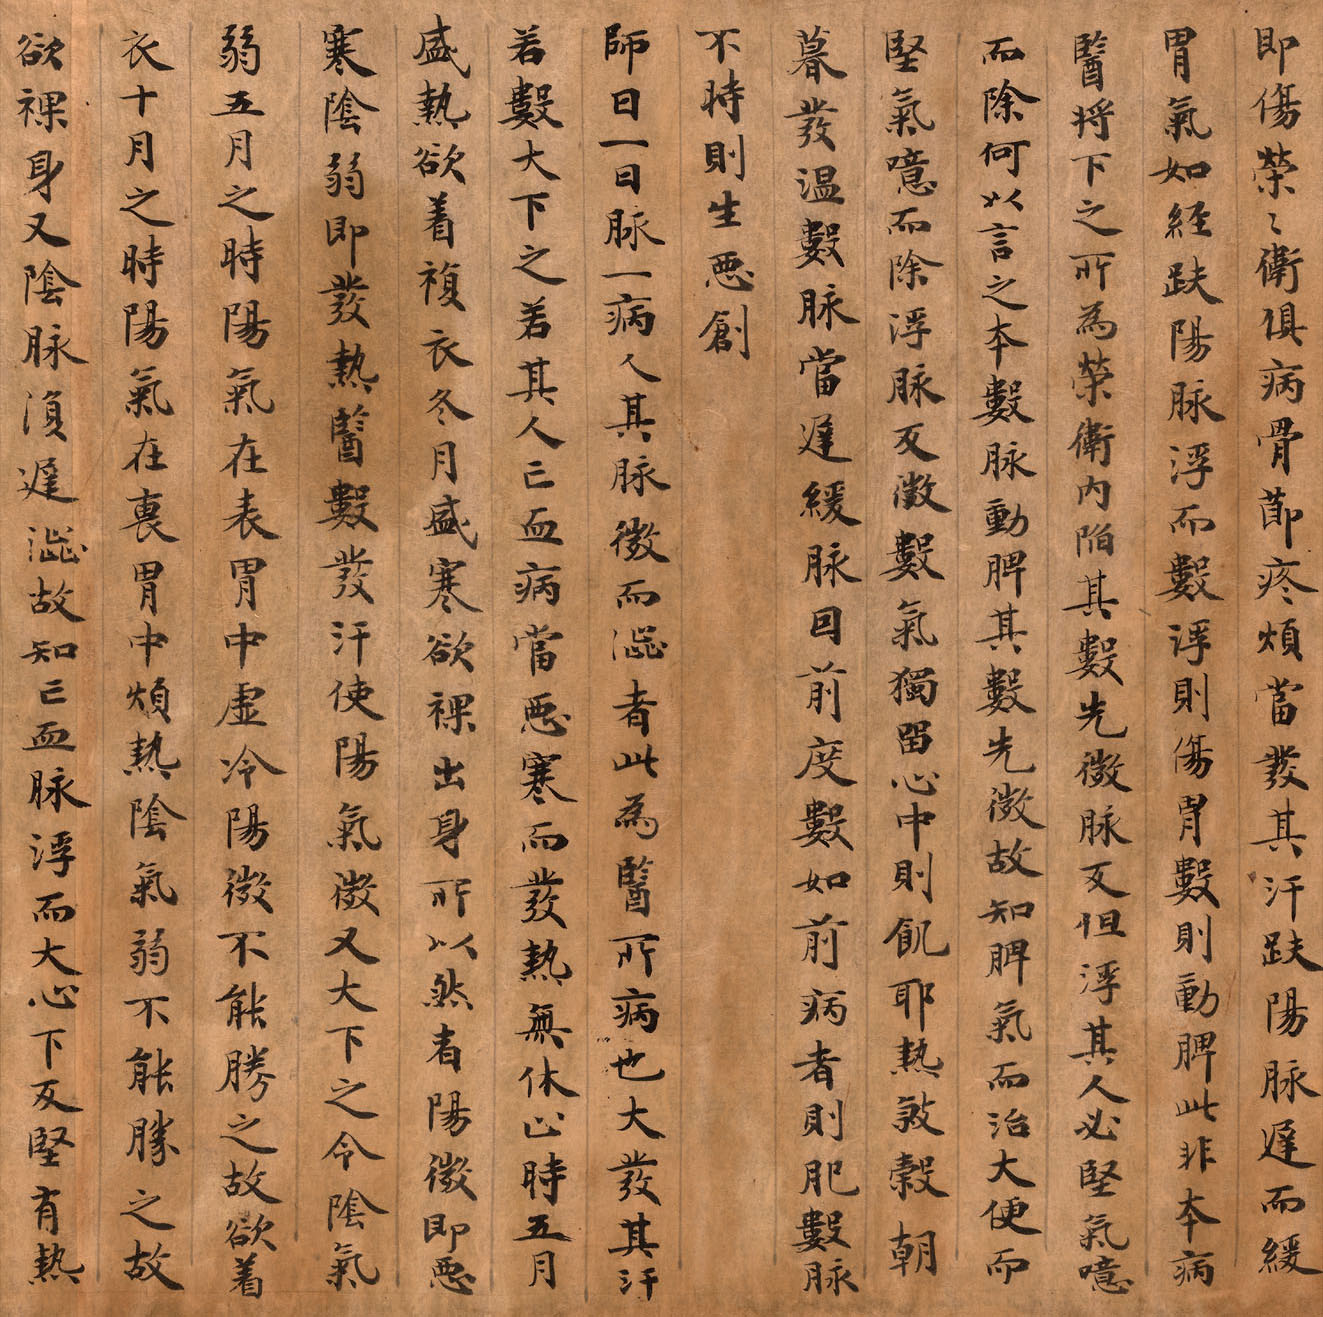 即傷榮〻衛俱病骨節疼煩當發其汗趺陽脉遲而緩
胃氣如經趺陽脉浮而數浮則傷胃數則動脾此非本病
醫將下之所為榮衛内陷其數先微脉反但浮其人必堅氣噫
而除何以言之本數脉動脾其數先微故知脾氣而治大便而
堅氣噫而除浮脉反微數氣獨留心中則飢耶熱煞穀朝
暮發温數脉當遲緩脉因前度數如前病者則肥數脉
不時則生惡創
師曰一日脉一病人其脉微而澁者此為醫所病也大發其汗
若數大下之若其人亡血病當惡寒而發熱無休止時五月
盛熱欲着複衣冬月盛寒欲裸出身所以然者陽微即惡
寒陰弱即發熱醫數發汗使陽氣微又大下之令陰氣
弱五月之時陽氣在表胃中虚冷陽微不能勝之故欲着
衣十月之時陽氣在裏胃中煩熱陰氣弱不能勝之故
欲裸身又陰脉湏遲澁故知亡血脉浮而大心下反堅有熱